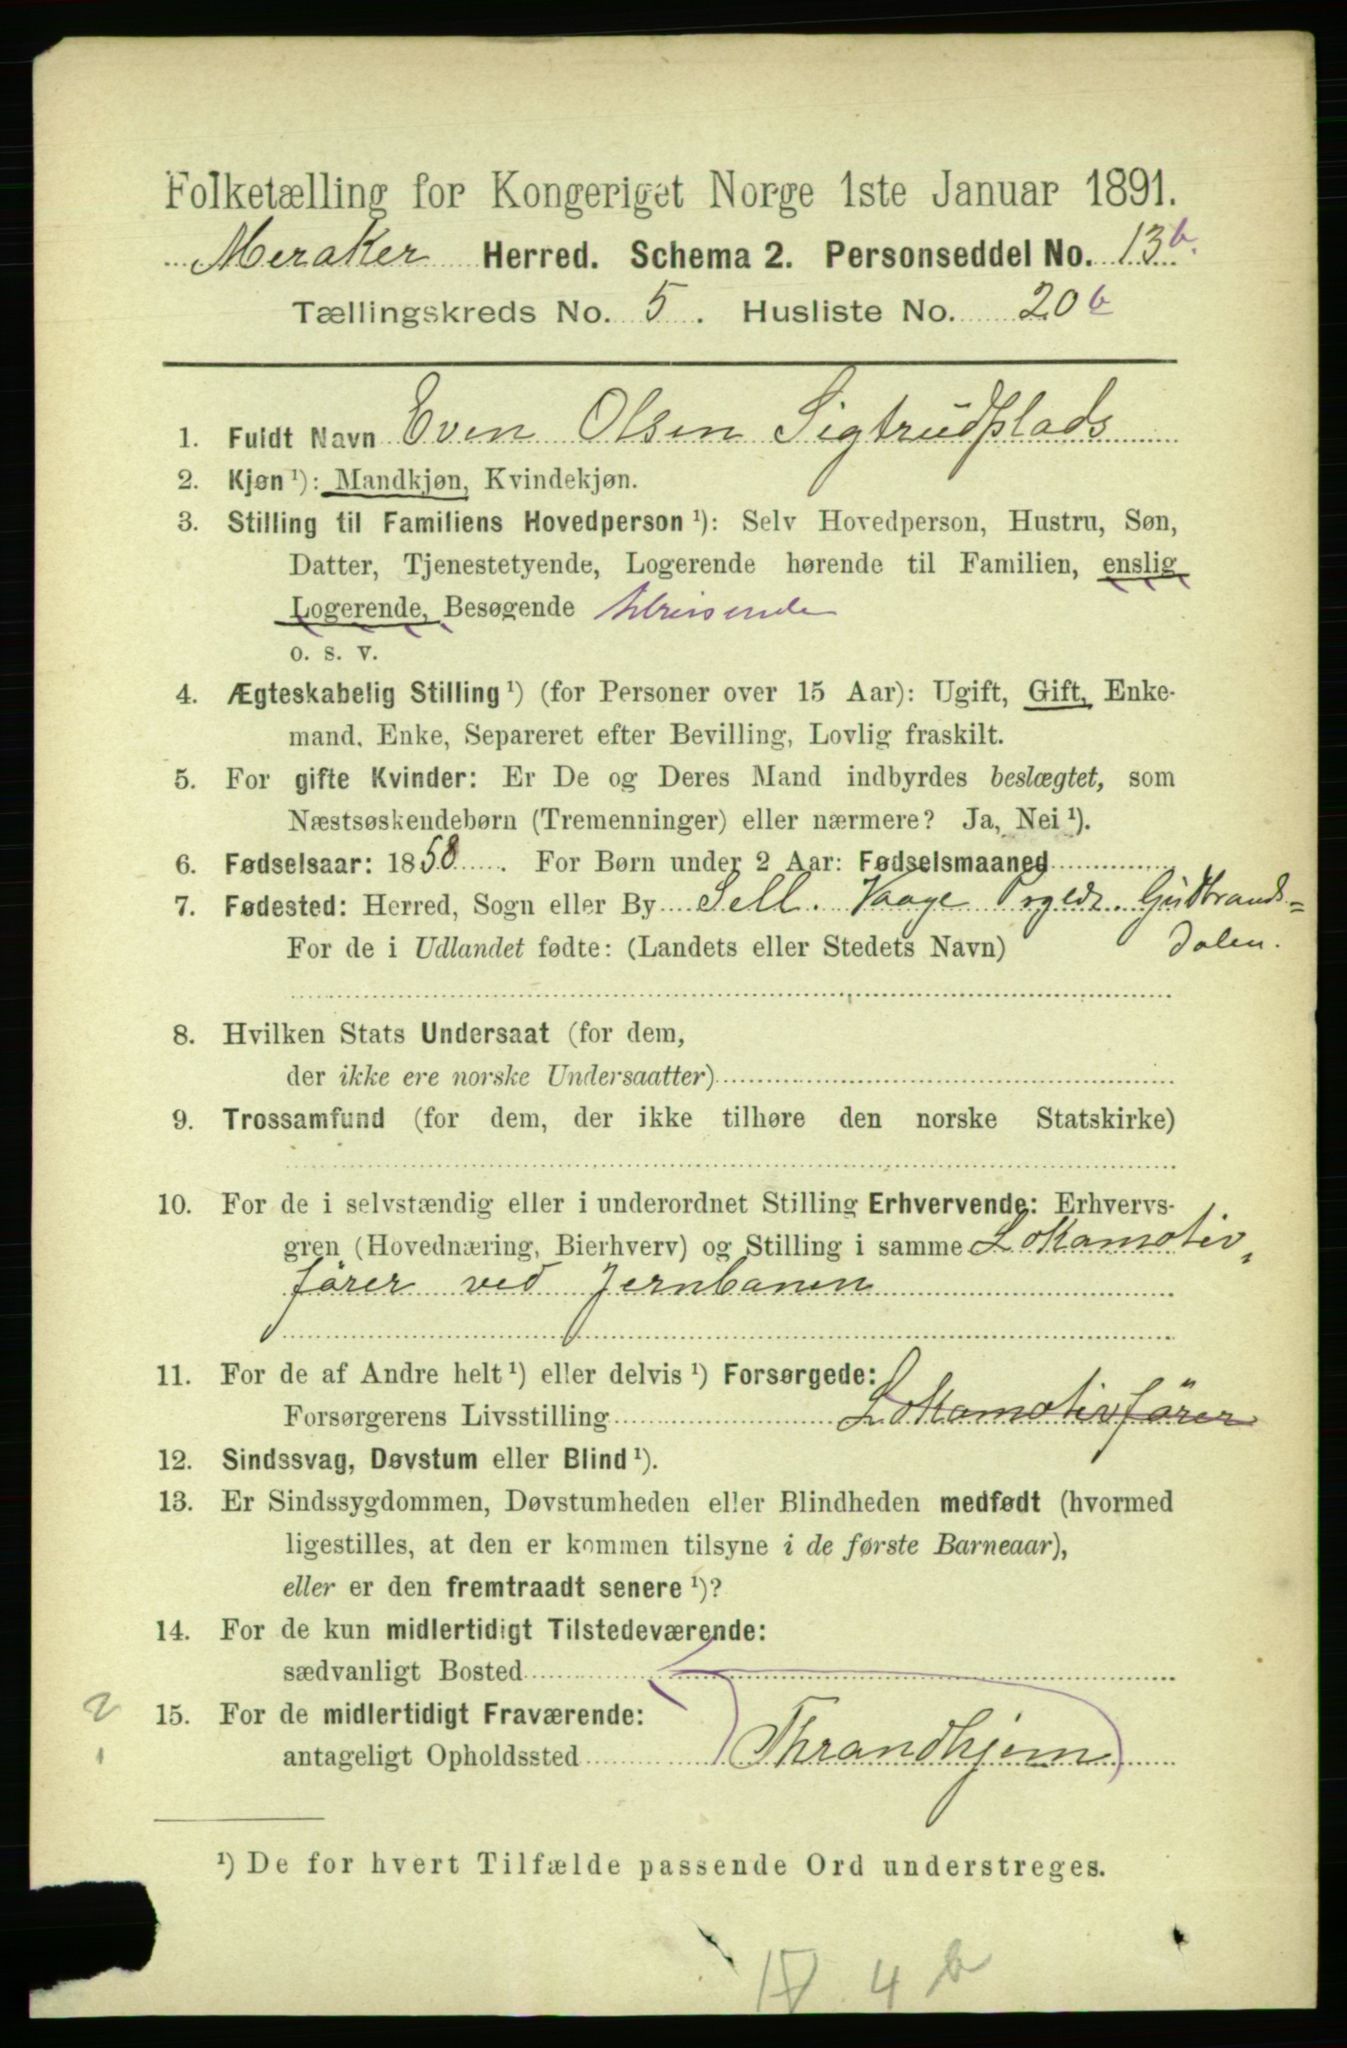 Folketælling for Kongeriget Norge 1ste Januar 1891.
Meraker Herred. Schema 2. Personseddel No. 13b.
Tællingskreds No. 5. Husliste No. 20b
1. Fuldt Navn Even Olsen Sigtrudplads
2. Kjøn ¹): Mandkjøn, Kvindekjøn.
3. Stilling til Familiens Hovedperson ¹): Selv Hovedperson, Hustru, Søn,
Datter, Tjenestetyende, Logerende hørende til Familien, enslig
Logerende, Besøgende tilreisende
o. s. v.
4. Ægteskabelig Stilling ¹) (for Personer over 15 Aar): Ugift, Gift, Enke-
mand, Enke, Separeret efter Bevilling, Lovlig fraskilt.
5. For gifte Kvinder: Er De og Deres Mand indbyrdes beslægtet, som
Næstsøskendebørn (Tremenninger) eller nærmere? Ja, Nei ¹).
6. Fødselsaar: 1858. For Børn under 2 Aar: Fødselsmaaned
7. Fødested: Herred, Sogn eller By Sell. Vaage Prgldr. Gudbrands=
For de i Udlandet fødte: (Landets eller Stedets Navn) dalen.
8. Hvilken Stats Undersaat (for dem,
der ikke ere norske Undersaatter)
9. Trossamfund (for dem, der ikke tilhøre den norske Statskirke)
10. For de i selvstændig eller i underordnet Stilling Erhvervende: Erhvervs-
gren (Hovednæring, Bierhverv) og Stilling i samme Lokamotiv-
fører ved Jernbanen
11. For de af Andre helt ¹) eller delvis ¹) Forsørgede:
Forsørgerens Livsstilling Lokamotivfører
12. Sindssvag, Døvstum eller Blind ¹).
13. Er Sindssygdommen, Døvstumheden eller Blindheden medfødt (hvormed
ligestilles, at den er kommen tilsyne i de første Barneaar),
eller er den fremtraadt senere ¹)?
14. For de kun midlertidigt Tilstedeværende:
sædvanligt Bosted
2 15. For de midlertidigt Fraværende:
antageligt Opholdssted Thrandhjem
¹) De for hvert Tilfælde passende Ord understreges.
4 b